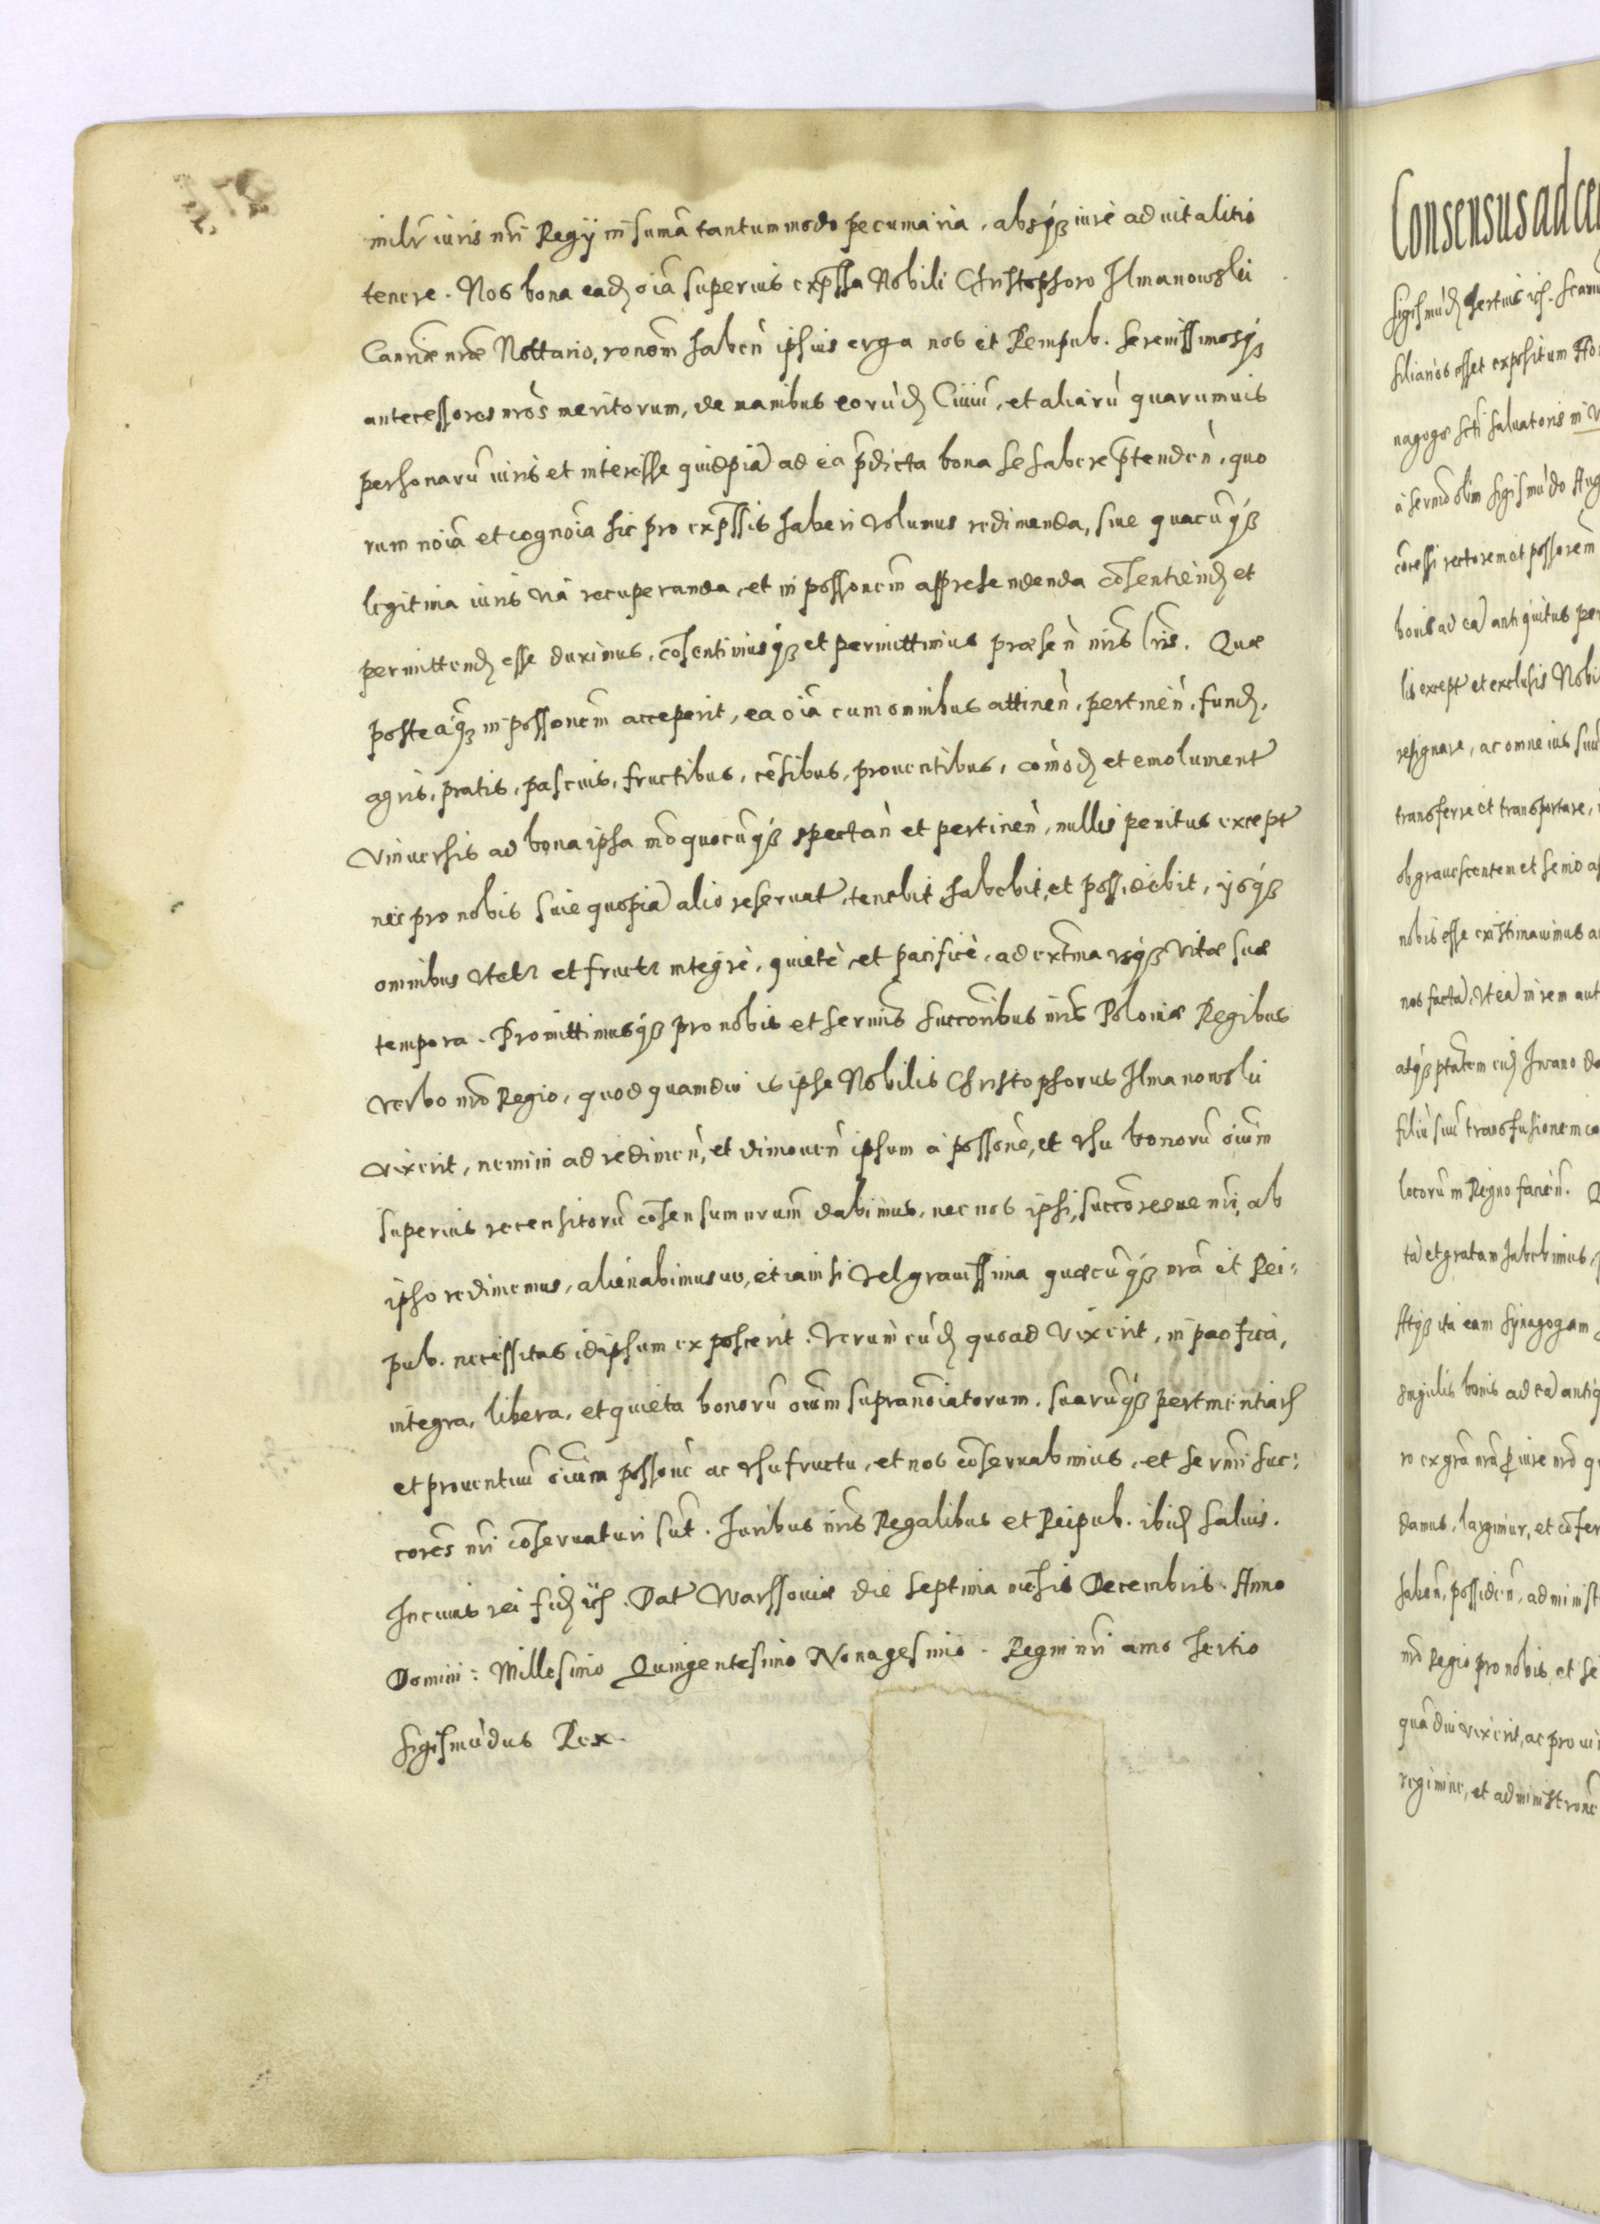 iuris nri Regij in sumã tantummodo pecuniaria, absq3 iure aduitalitio
tenere. Nos bona ead oia superius exp̃ssa Nobili Christophoro Ilmanowski
Canriæ nræ Nottario, ronem haben ipsius erga nos et Rempub. Serenissimosq3
antecessores nros meritorum, de manibus eorùd Ciuiũ, et aliarù quarumuis
personarũ iuris et interesse quidpiã ad ea p̃dicta bona se habere p̃tenden, quo
rum noia et cognoia hic pro exp̃ssis haberi volumus redimenda, siue quacũq3
legitima iuris via recuperanda, et in possonem apprehendenda cõsentiend et
permittend esse duximus, cõsentimusq3 et permittimus præsen nris lris. Quæ
posteaq3 in possonem acceperit, ea oia cum omnibus attinen, pertinen, fund,
agris, pratis, pascuis, fructibus, cẽsibus, prouentibus, cõmod et emolument
vniuersis ad bona ipsa mõ quocũq3 spectan et pertinen, nullis penitus except
nec pro nobis siue quopiã alio reseruat, tenebit habebit, et possidebit, ijsq3
omnibus vtetr et fruetr integrè, quietè et pacificè, ad extrma vsq3 vitæ suæ
tempora. Promittimusq3 pro nobis et sermis succoribus nris Poloniæ Regibus
verbo nro Regio, quod quamdiu is ipse Nobilis Christophorus Ilmanowski
vixerit, nemini ad redimen, et dimouen ipsum à possone, et vsu bonorũ oium
superius recensitorũ cõsensum nrum dabimus, nec nos ipsi, succoresue nri, ab
ipso redimemus, alienabimusue, etiamsi vel grauissima quæcũq3 nra et Rei-
pub. necessitas idipsum exposcerit. Verum eùd quoad vixerit, in pacifica,
integra, libera, et quieta bonorũ oium supranoiatorum, suarũq3 pertinentiar
et prouentuũ oium possone ac vsufructu, et nos cõseruabimus, et sermi suc-
cores nri cõseruaturi sũt. Iuribus nris Regalibus et Reipub. ibid saluis.
In cuius rei fid ic. Dat Warssouiæ die septima mẽsis Decembris. Anno
Domini: Millesimo Quingentesimo Nonagesimo. Regni nri anno tertio
Sigismũdus Rex.
Consensus ad
Sigismũd Tertius
esset expositum
nagogæ scti saluatoris in
à sermo olim Sigismũdo Aug
rectorem et possorem
bonis ad eã antiquitus per
lis except et exclusis Nobi
resignare, ac omne ius suũ
transferre et transportare,
ob grauescentem et senio
nobis esse existimauimus
nos facta, vt eã in rem
Iwano
filiũ suũ transfusionem
locorũ in Regno
tã et gratam habebimus,
Atq3 ita eam synagogam
singulis bonis ad eã antiq
ro ex gra nra
damus, largimur, et cõfer
haben, possiden, administ
nro Regio pro nobis, et se
quãdiu vixerit, ac pro
regimine, et administrone